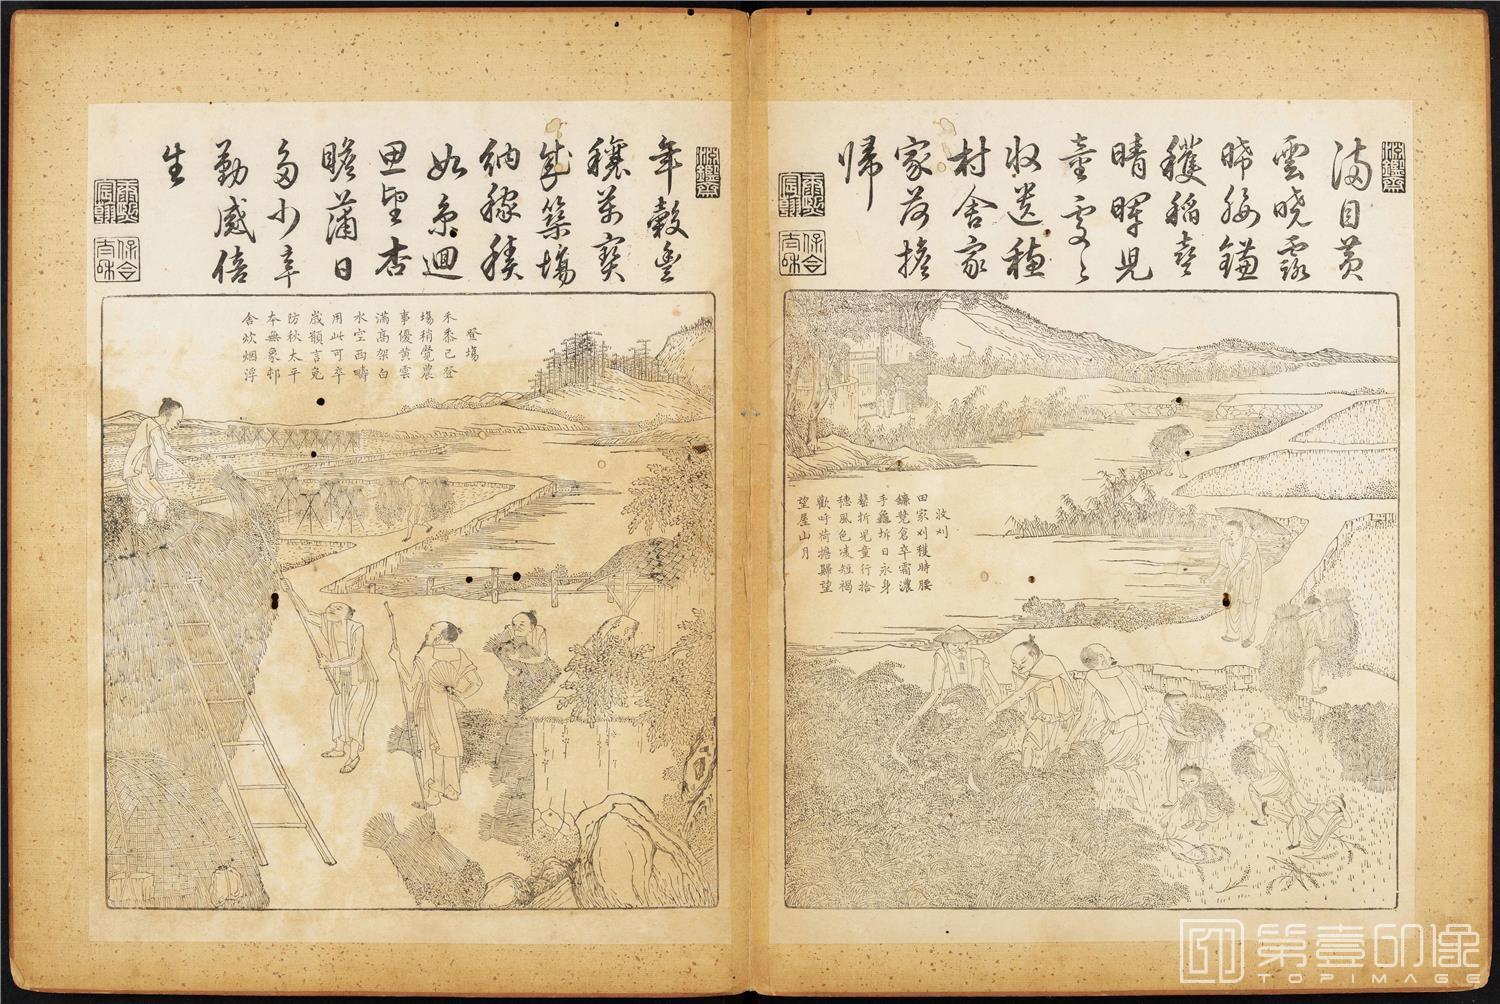 淵鑒齋
滿目黃
雲曉露
晞腰鎌
穫稻喜
晴暉兒
童處〻
收遺穗
村舍家
家荷擔
歸
康熙
宸翰
保合
太和
收刈
田家刈穫時腰
鐮競倉卒霜濃
手龜坼日永身
罄折兒童行拾
穗風色凌短褐
歡呼荷擔歸望
望屋山月
淵鑒齋
年穀豐
穰萬寶
成築場
納稼積
如京迴
思望杏
瞻蒲日
多少辛
勤感倍
生
康熙
宸翰
保合
太和
登場
禾黍已登
場稍覺農
事優黃雲
滿高架白
水空西疇
用此可卒
歲願言免
防秋太平
本無象邨
舍炊烟浮
第壹印像
TOPIMAGE